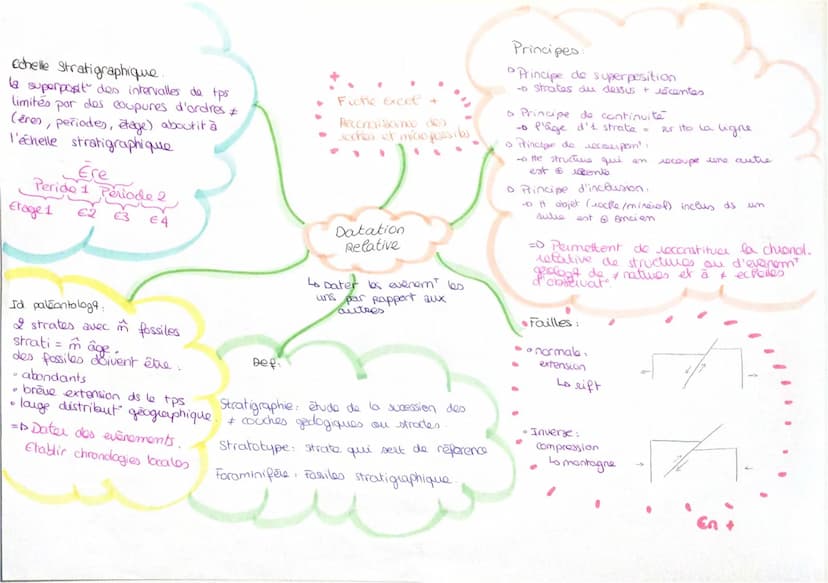 Echelle Stratigraphique.
la superposit° des intervalles de tps
limités par des coupures d'ordres ≠
(ères, périodes, étage) aboutit à
l'échelle stratigraphique
Ère
Periode 1 Période 2
Etage 1 E2 E3 E4
Fiche excel +
Reconnaissance des
roches et microfossiles
Principes :
Principe de superposition
→ strates du dessus + récentes
Principe de continuité
→ l'âge d'1 strate = sur tte la ligne
Principe de recoupem^t :
→ tte structure qui en recoupe une autre
est ⊕ récente
Principe d'inclusion :
→ objet (roche/minéral) inclus ds un
autre est ⊕ ancien
=> Permettent de reconstituer la chronol.
relative de structures ou d'évenem^t
géolog de ≠ natures et à ≠ echelles
d'observat°
Datation
Relative
↳ Dater les evenem^t les
uns par rapport aux
autres
Id paléontolog9.
2 strates avec m̂ fossiles
strati = m̂ âge.
des fossiles doivent être :
• abondants
• brève extension ds le tps
• large distribut° géographique.
=> Dater des evènements.
Etablir chronologies locales
Def :
Stratigraphie : étude de la sucession des
≠ couches géologiques ou strates.
Stratotype : strate qui sert de référence
Foraminifère : Fossiles stratigraphique.
Failles :
• normale :
extension
↳ rift
• Inverse :
compression
↳ montagne
En +